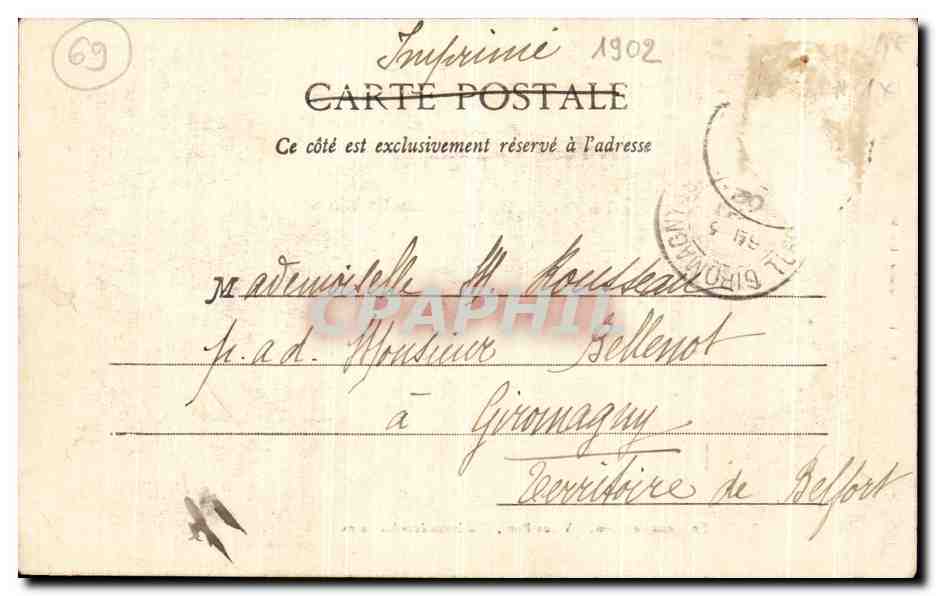 69
Imprimé 1902
CARTE POSTALE
Ce côté est exclusivement réservé à l'adresse
GIROMAGNY
Mademoiselle M. Rousseau
CPAPHIL
p. ad. Monsieur Bellenot
à Giromagny
Territoire de Belfort